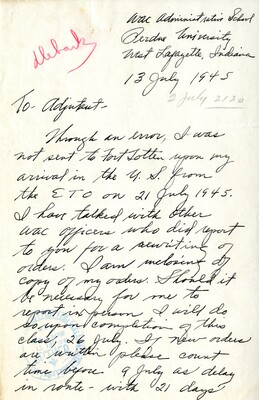 Wac Administrative School
Purdue University
West Lafayette, Indiana
13 July 1945
3 July 2120
To- Adjutant-
Through an error, I was
not sent to Fort Totten upon my
arrival in the U.S. from
the ETO on 21 July 1945.
I have talked with other
wac officers who did report
to you for a rewriting of
orders. I am inclosing a
copy of my orders. Should it
be necessary for me to
report in person I will do
so upon completion of this
class, 26 July. If new orders
are written please count
time before 9 July as delay
in route - with 21 days